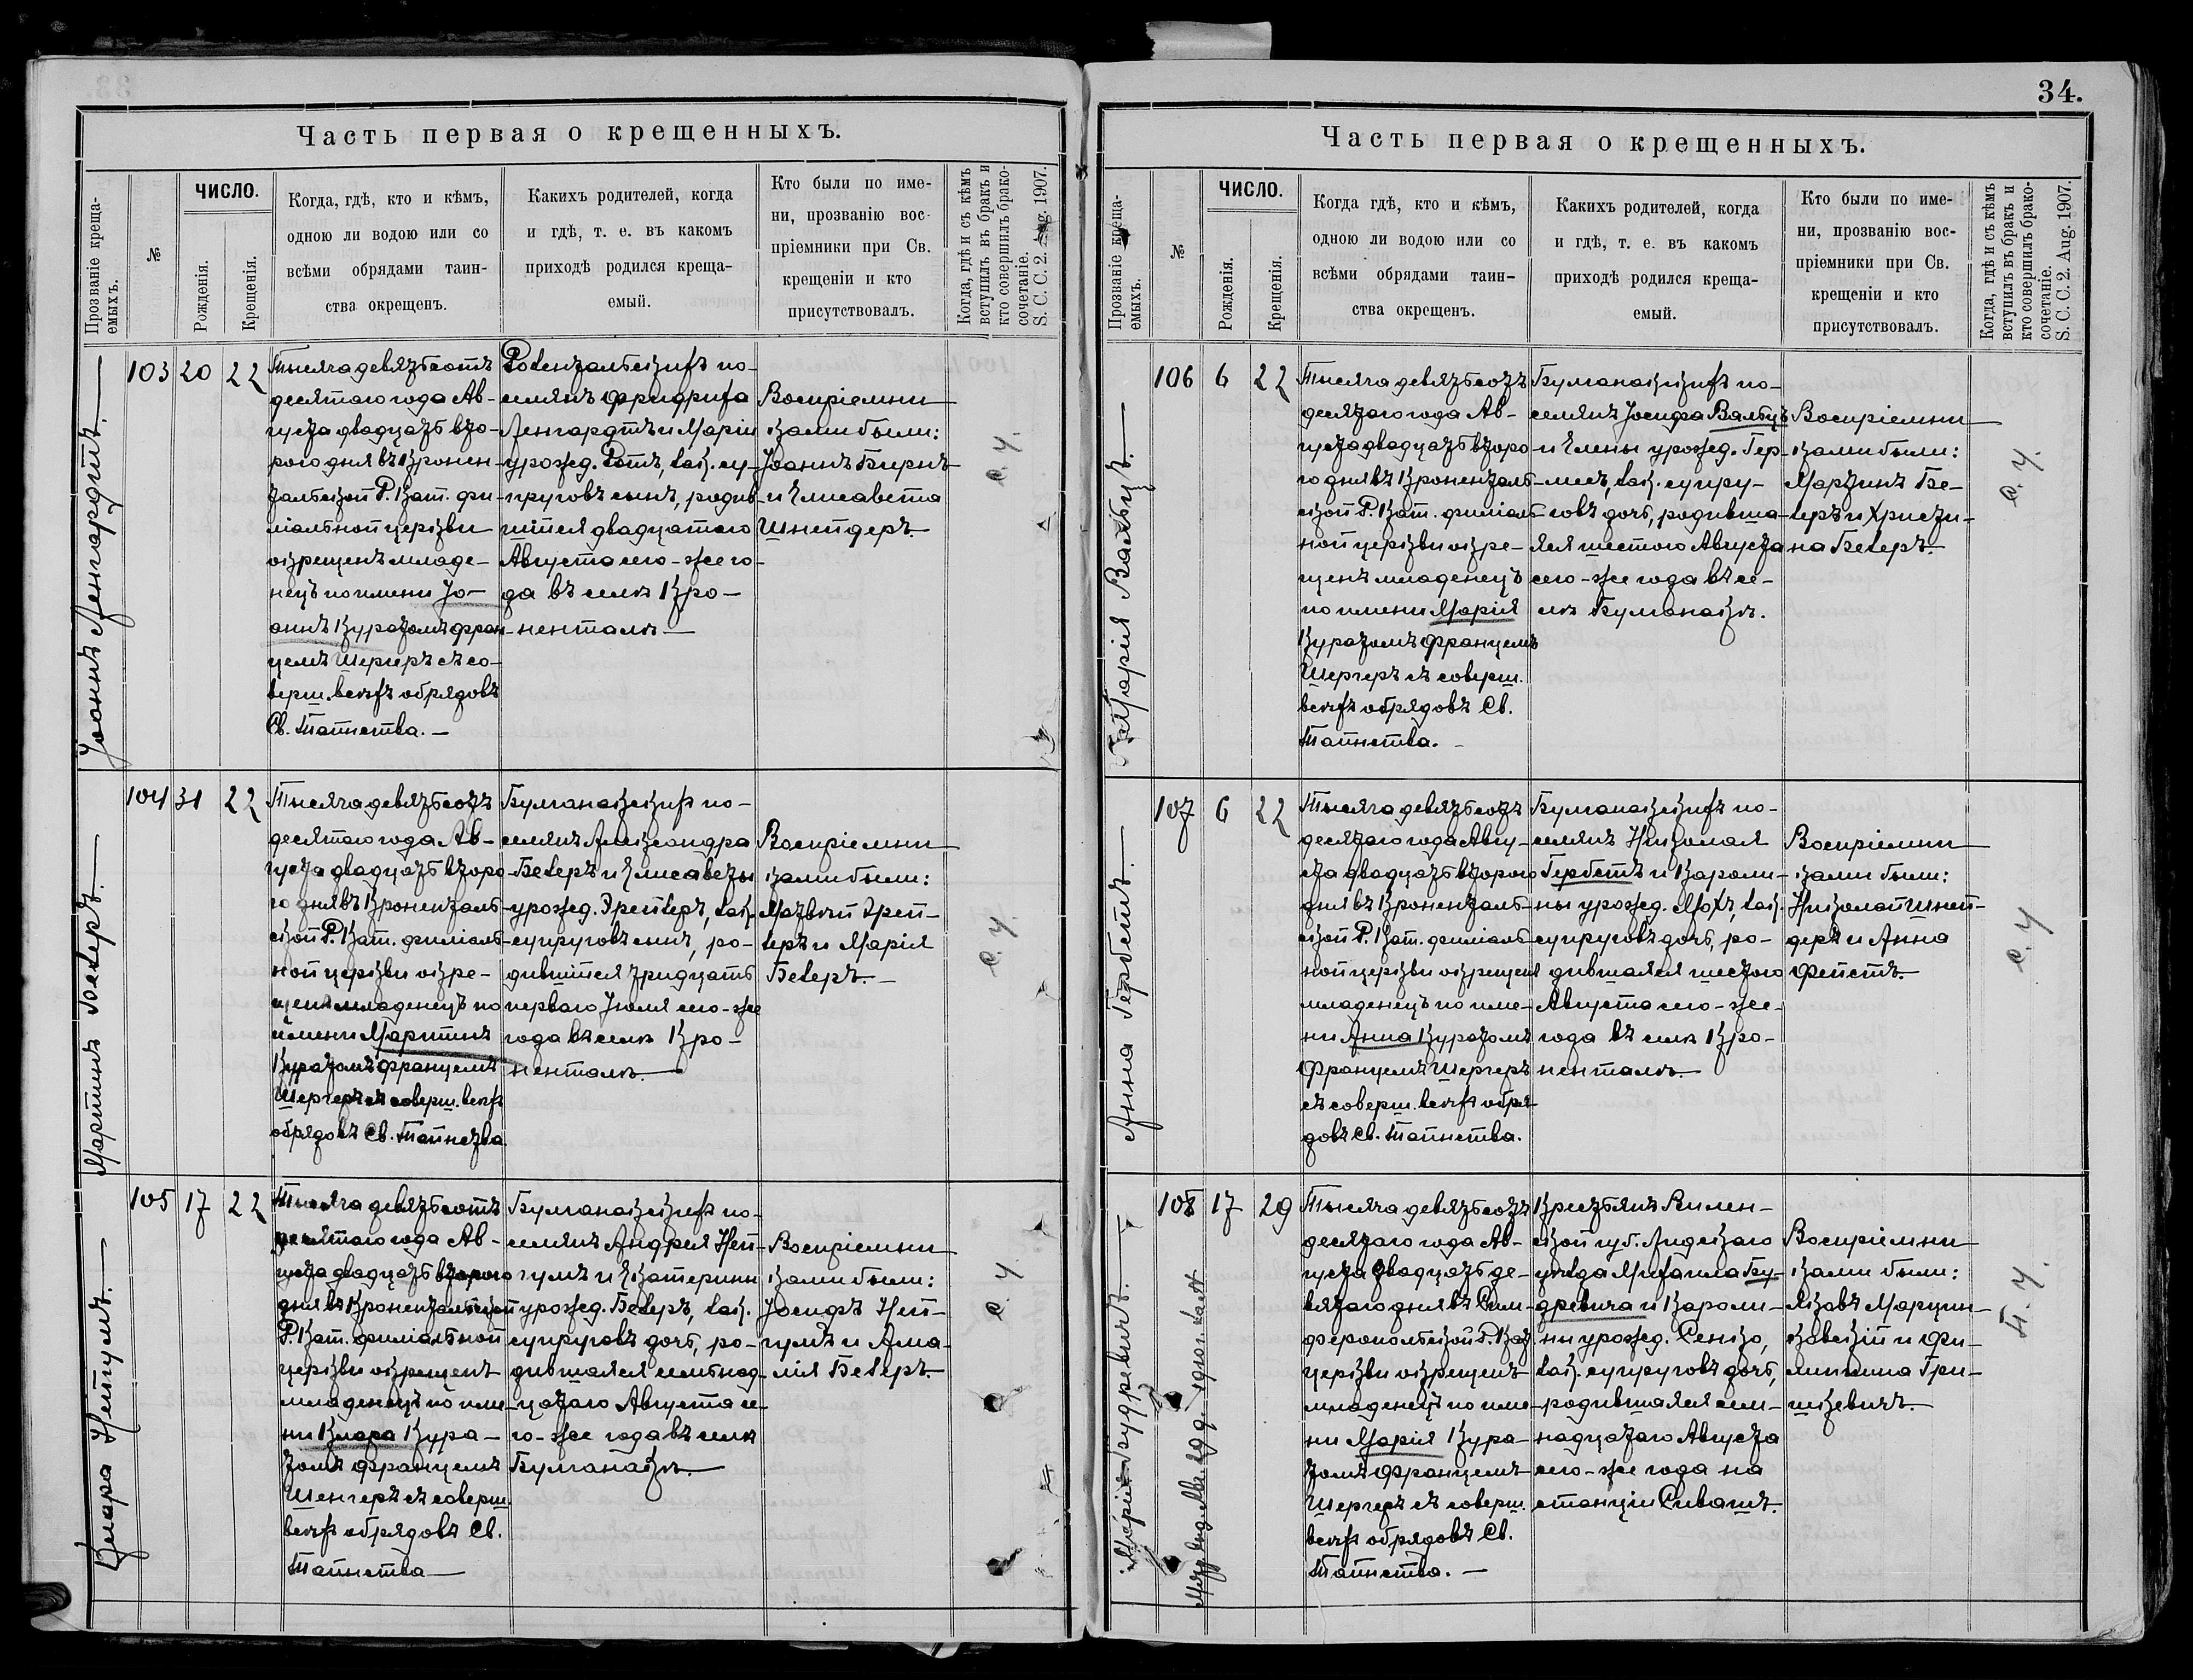 Часть первая о крещенныхъ.
Прозваніе креща-
емыхъ.
№
ЧИСЛО.
Рожденія.
Крещенія.
Когда, гдѣ, кто и кѣмъ,
одною ли водою или со
всѣми обрядами таин-
ства окрещенъ.
Какихъ родителей, когда
и гдѣ, т. е. въ какомъ
приходѣ родился креща-
емый.
Кто были по име-
ни, прозванію вос-
пріемники при Св.
крещеніи и кто
присутствовалъ.
Когда, гдѣ и съ кѣмъ
вступилъ въ бракъ и
кто совершилъ брако-
сочетаніе.
S. C. C. 2. Aug. 1907.
Іоаннъ Ленгардтъ.
103 20 22
Тысяча девятьсотъ
десятаго года Ав-
густа двадцать вто-
рого дня въ Кронен-
тальской Р. Кат. фи-
ліальной церкви
окрещенъ младе-
нецъ по имени Іо-
аннъ Куратомъ Фран-
цемъ Шергеръ съ со-
верш. всѣхъ обрядовъ
Св. Таинства.
Розентальскихъ по-
селянъ Фридриха
Ленгардтъ и Маріи
урожд. Ротъ, зак. су-
пруговъ сынъ, родив-
шійся двадцатаго
Августа сего-же го-
да въ селѣ Кро-
ненталѣ
Воспріемни
ками были:
Іоаннъ Бирнъ
и Елисавета
Шнейдеръ.
с. у.
Мартинъ Безеръ.
104 31 22
Тысяча девятьсотъ
десятаго года Ав-
густа двадцать второ
го дня въ Кроненталь-
ской Р. Кат. филіаль-
ной церкви окре-
щенъ младенецъ по
имени Мартинъ
Куратомъ Францемъ
Шергеръ съ соверш. всѣхъ
обрядовъ Св. Таинства
Булганакскихъ по-
селянъ Александра
Безеръ и Елисаветы
урожд. Дрейзеръ, зак.
супруговъ сынъ, ро-
дившійся тридцать
перваго Іюля сего-же
года въ селѣ Кро-
ненталѣ.
Воспріемни
ками были:
Матвѣй Дрей-
зеръ и Марія
Безеръ.
с. у.
Клара Нейгумъ.
105 17 22
Тысяча девятьсотъ
десятаго года Ав-
густа двадцать второго
дня въ Кронентальской
Р. Кат. филіальной
церкви окрещенъ
младенецъ по име-
ни Клара Кура-
томъ Францемъ
Шенгеръ съ соверш.
всѣхъ обрядовъ Св.
Таинства
Булганакскихъ по-
селянъ Андрея Ней-
гумъ и Екатерины
урожд. Безеръ, зак.
супруговъ дочь, ро-
дившаяся семьнад-
цатаго Августа се-
го-же года въ селѣ
Булганакѣ.
Воспріемни
ками были:
Іосифъ Ней-
гумъ и Ама-
лія Безеръ.
с. у.
34.
Часть первая о крещенныхъ.
Прозваніе креща-
емыхъ.
№
ЧИСЛО.
Рожденія.
Крещенія.
Когда гдѣ, кто и кѣмъ,
одною ли водою или со
всѣми обрядами таин-
ства окрещенъ.
Какихъ родителей, когда
и гдѣ, т. е. въ какомъ
приходѣ родился креща-
емый.
Кто были по име-
ни, прозванію вос-
пріемники при Св.
крещеніи и кто
присутствовалъ.
Когда, гдѣ и съ кѣмъ
вступилъ въ бракъ и
кто совершилъ брако-
сочетаніе.
S. C. C. 2. Aug. 1907.
Марія Вальцъ.
106 6 22
Тысяча девятьсотъ
десятаго года Ав-
густа двадцать второ
го дня въ Кроненталь-
ской Р. Кат. филіаль-
ной церкви окре-
щенъ младенецъ
по имени Марія
Куратомъ Францемъ
Шергеръ съ соверш.
всѣхъ обрядовъ Св.
Таинства.
Булганакскихъ по-
селянъ Іосифа Вальцъ
и Елены урожд. Гер-
месъ, зак. супру-
говъ дочь, родивша-
яся шестого Августа
сего-же года въ се-
лѣ Булганакѣ.
Воспріемни
ками были:
Мартинъ Бе-
зеръ и Христи-
на Безеръ.
с. у.
Анна Гербстъ.
107 6 22
Тысяча девятьсотъ
десятаго года Авгу-
ста двадцать второго
дня въ Кроненталь-
ской Р. Кат. филіаль-
ной церкви окрещенъ
младенецъ по име-
ни Анна Куратомъ
Францемъ Шергеръ
съ соверш. всѣхъ обря-
довъ Св. Таинства.
Булганакскихъ по-
селянъ Николая
Гербстъ и Кароли-
ны урожд. Мохъ, зак.
супруговъ дочь, ро-
дившаяся шестого
Августа сего-же
года въ селѣ Кро-
ненталѣ.
Воспріемни
ками были:
Николай Шней-
деръ и Анна
Фейстъ.
с. у
Марія Будревичъ.
108 17 29
Тысяча девятьсотъ
десятаго года Ав-
густа двадцать де-
вятаго дня въ Сим-
феропольской Р. Кат.
церкви окрещенъ
младенецъ по име-
ни Марія Кура-
томъ Францемъ
Шергеръ съ соверш.
всѣхъ обрядовъ Св.
Таинства.
Крестьянъ Вилен-
ской губ. Лидскаго
уѣзда Михаила Бу-
древича и Кароли-
ны урожд. Сенко,
зак. супруговъ дочь,
родившаяся сем-
надцатаго Августа
сего-же года на
станціи Сивашъ.
Воспріемни
ками были:
Яковъ Марцин-
ковскій и Фи-
ломена Гри-
шкевичъ.